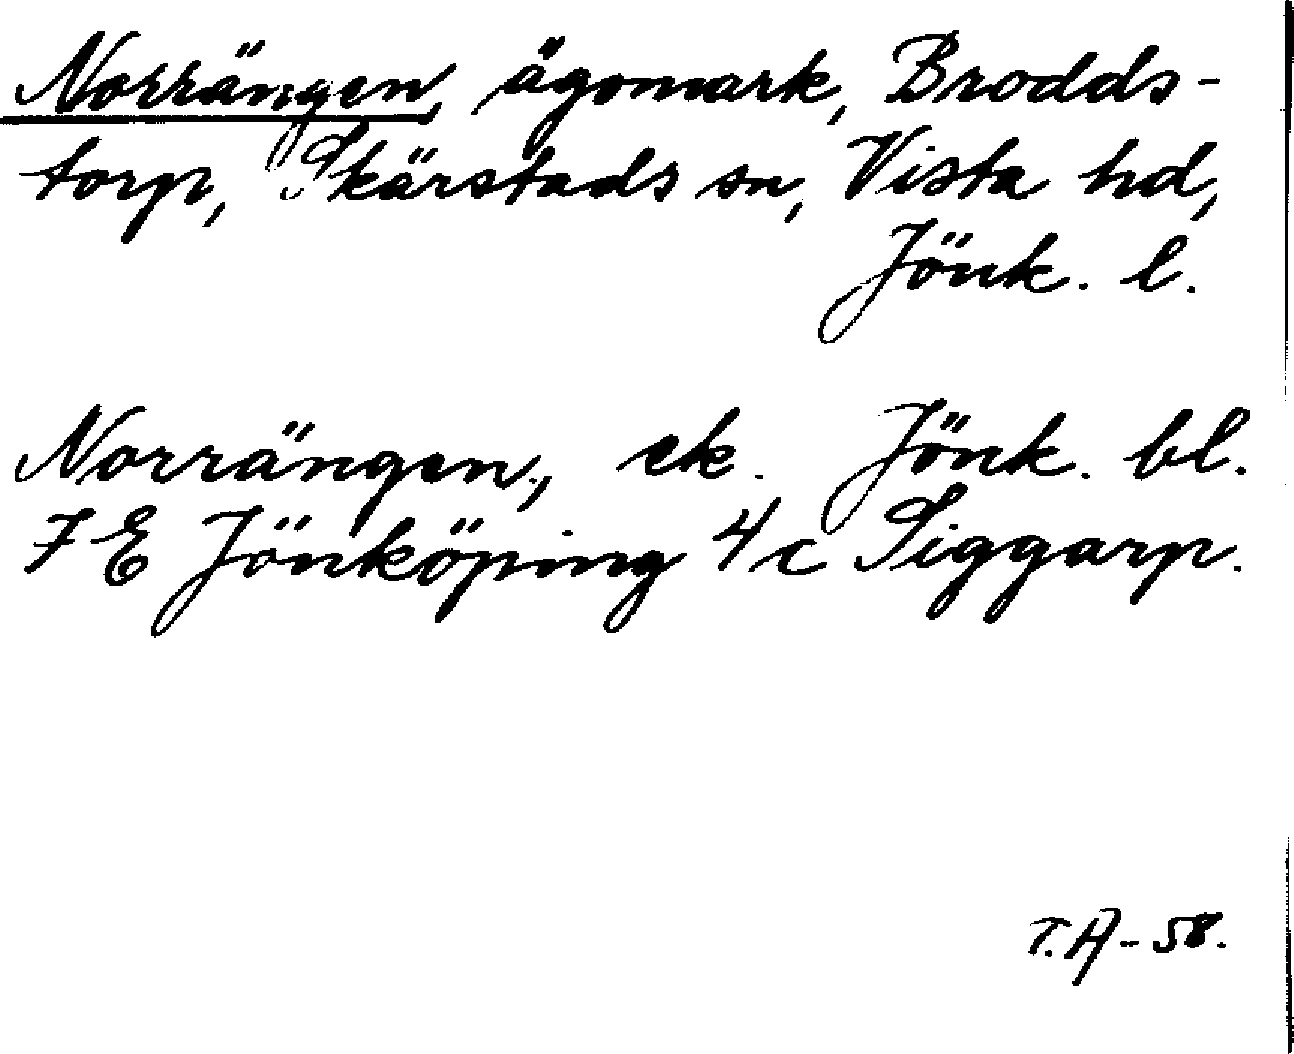 Norrängen, ägomark, Brodds-
torp, Skärstads sn, Vista hd,
Jönk. l.
Norrängen, ek. Jönk. bl.
7 E Jönköping 4 c Siggarp.
T.A-58.